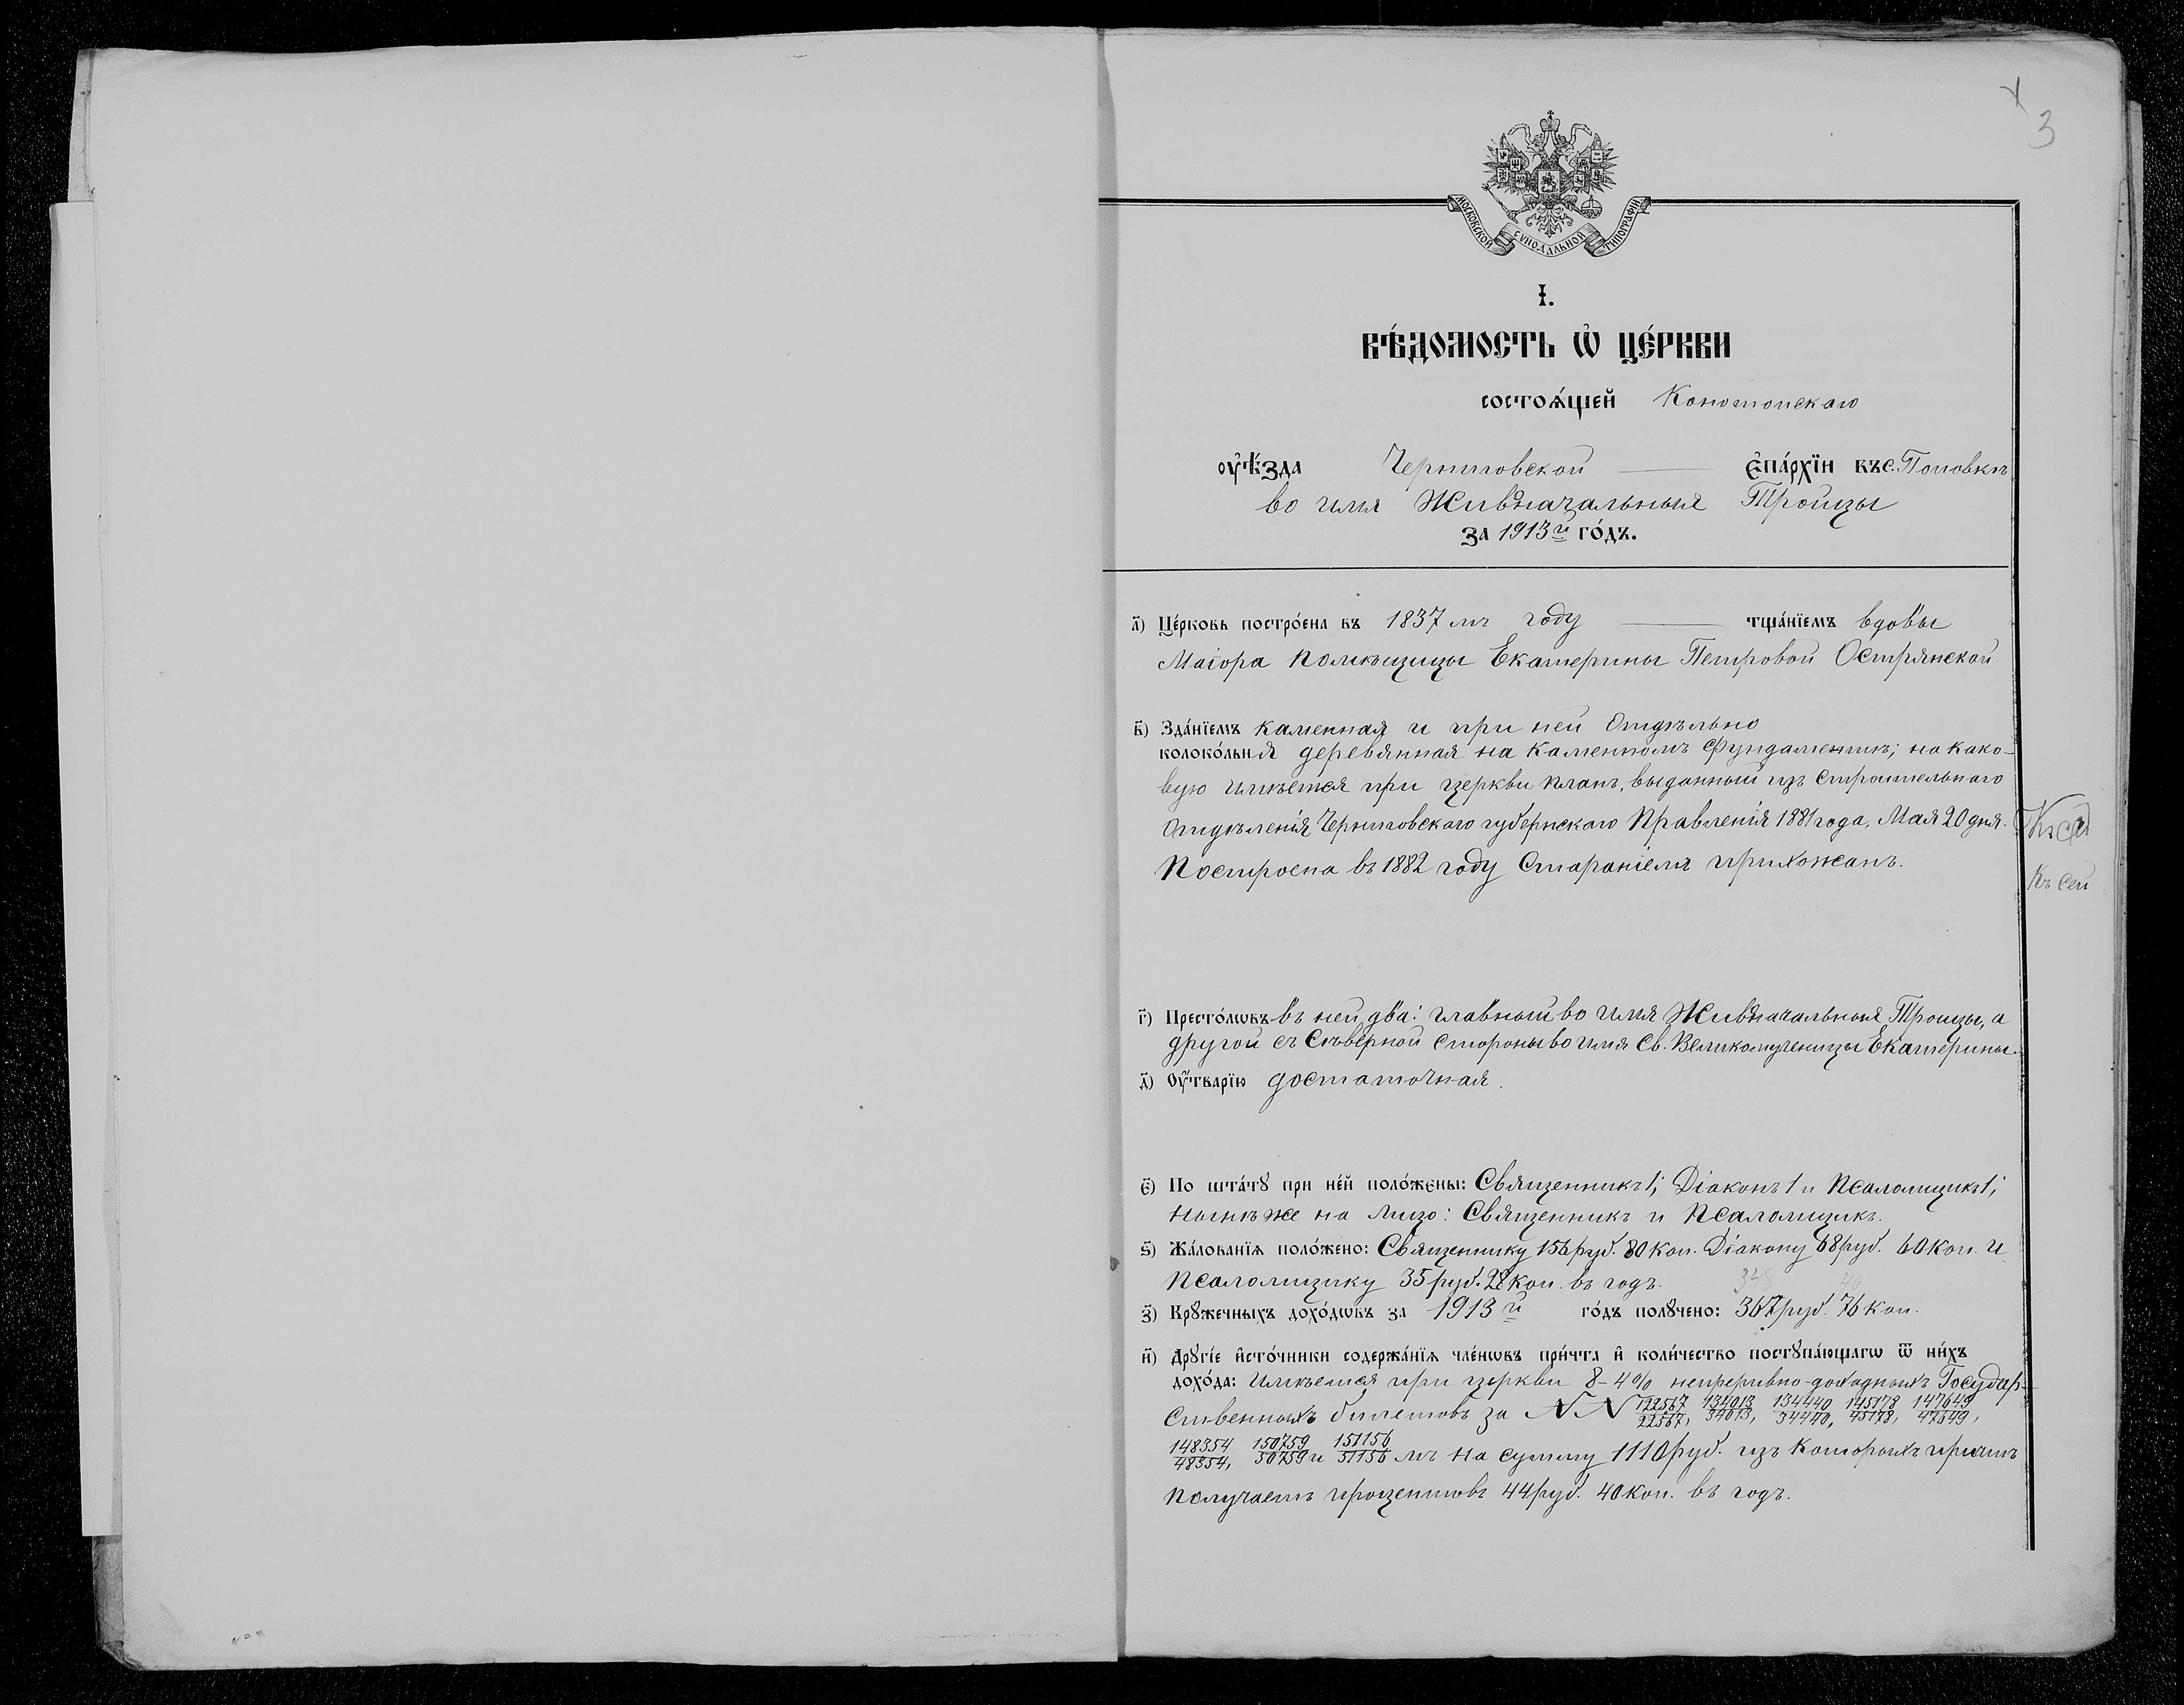 3
МОСКОВСКОЙ СѴНОДАЛЬНОЙ ТИПОГРАФІИ
І.
ВѢ́ДОМОСТЬ Ѡ҆ ЦЕ́РКВИ
состоѧ́щей Конотопскаго
ᲂу҆ѣ́зда Черниговской є҆па́рхїи въ с. Поповкѣ
во имя Живоначальныя Троицы
за 1913й го́дъ.
а҃) Це́рковь постро́ена въ 1837 мъ году тща́нїемъ вдовы
Маіора помѣщицы Екатерины Петровой Острянской.
в҃) Зда́нїемъ каменная и при ней отдѣльно
колоко́льнѧ деревянная на каменномъ фундаментѣ; на како-
вую имѣется при церкви планъ, выданный изъ строительнаго
Отдѣленія Черниговскаго губернскаго Правленія 1881 года, Мая 20 дня.
Построена въ 1882 году стараніемъ прихожанъ.
Къ сей
г҃) Престо́лѡвъ въ ней два: главный во имя Живоначальныя Троицы, а
другой съ сѣверной стороны во имя Св. Великомученицы Екатерины.
д҃) Оу҆́тварїю достаточная.
є҃) По шта́тꙋ при не́й поло́жены: Священникъ 1; Діаконъ 1 и Псаломщикъ 1;
нынѣ же на лицо: Священникъ и Псаломщикъ.
ѕ҃) Жа́лованїѧ поло́жено: Священнику 156 руб. 80 коп. Діакону 68 руб. 60 коп. и
Псаломщику 35 руб. 28 коп. въ годъ.
з҃) Крꙋ́жечныхъ дохо́дѡвъ за 1913й го́дъ полꙋ́чено: 367 руб. 76 коп.
и҃) Дрꙋгі́е и҆сто́чники содержа́нїѧ чле́нѡвъ при́чта и҆ коли́чество постꙋпа́ющагѡ ѿ ни́хъ
дохо́да: Имѣется при церкви 8 - 4% непрерывно-доходныхъ Государ-
ственныхъ билетовъ за NN 122567/22567, 134013/34013, 134440/34440, 145178/45178, 147649/47649,
148354/48354, 150759/50759 и 151156/51156 мъ на сумму 1110 руб. изъ которыхъ причтъ
получаетъ процентовъ 44 руб. 40 коп. въ годъ.